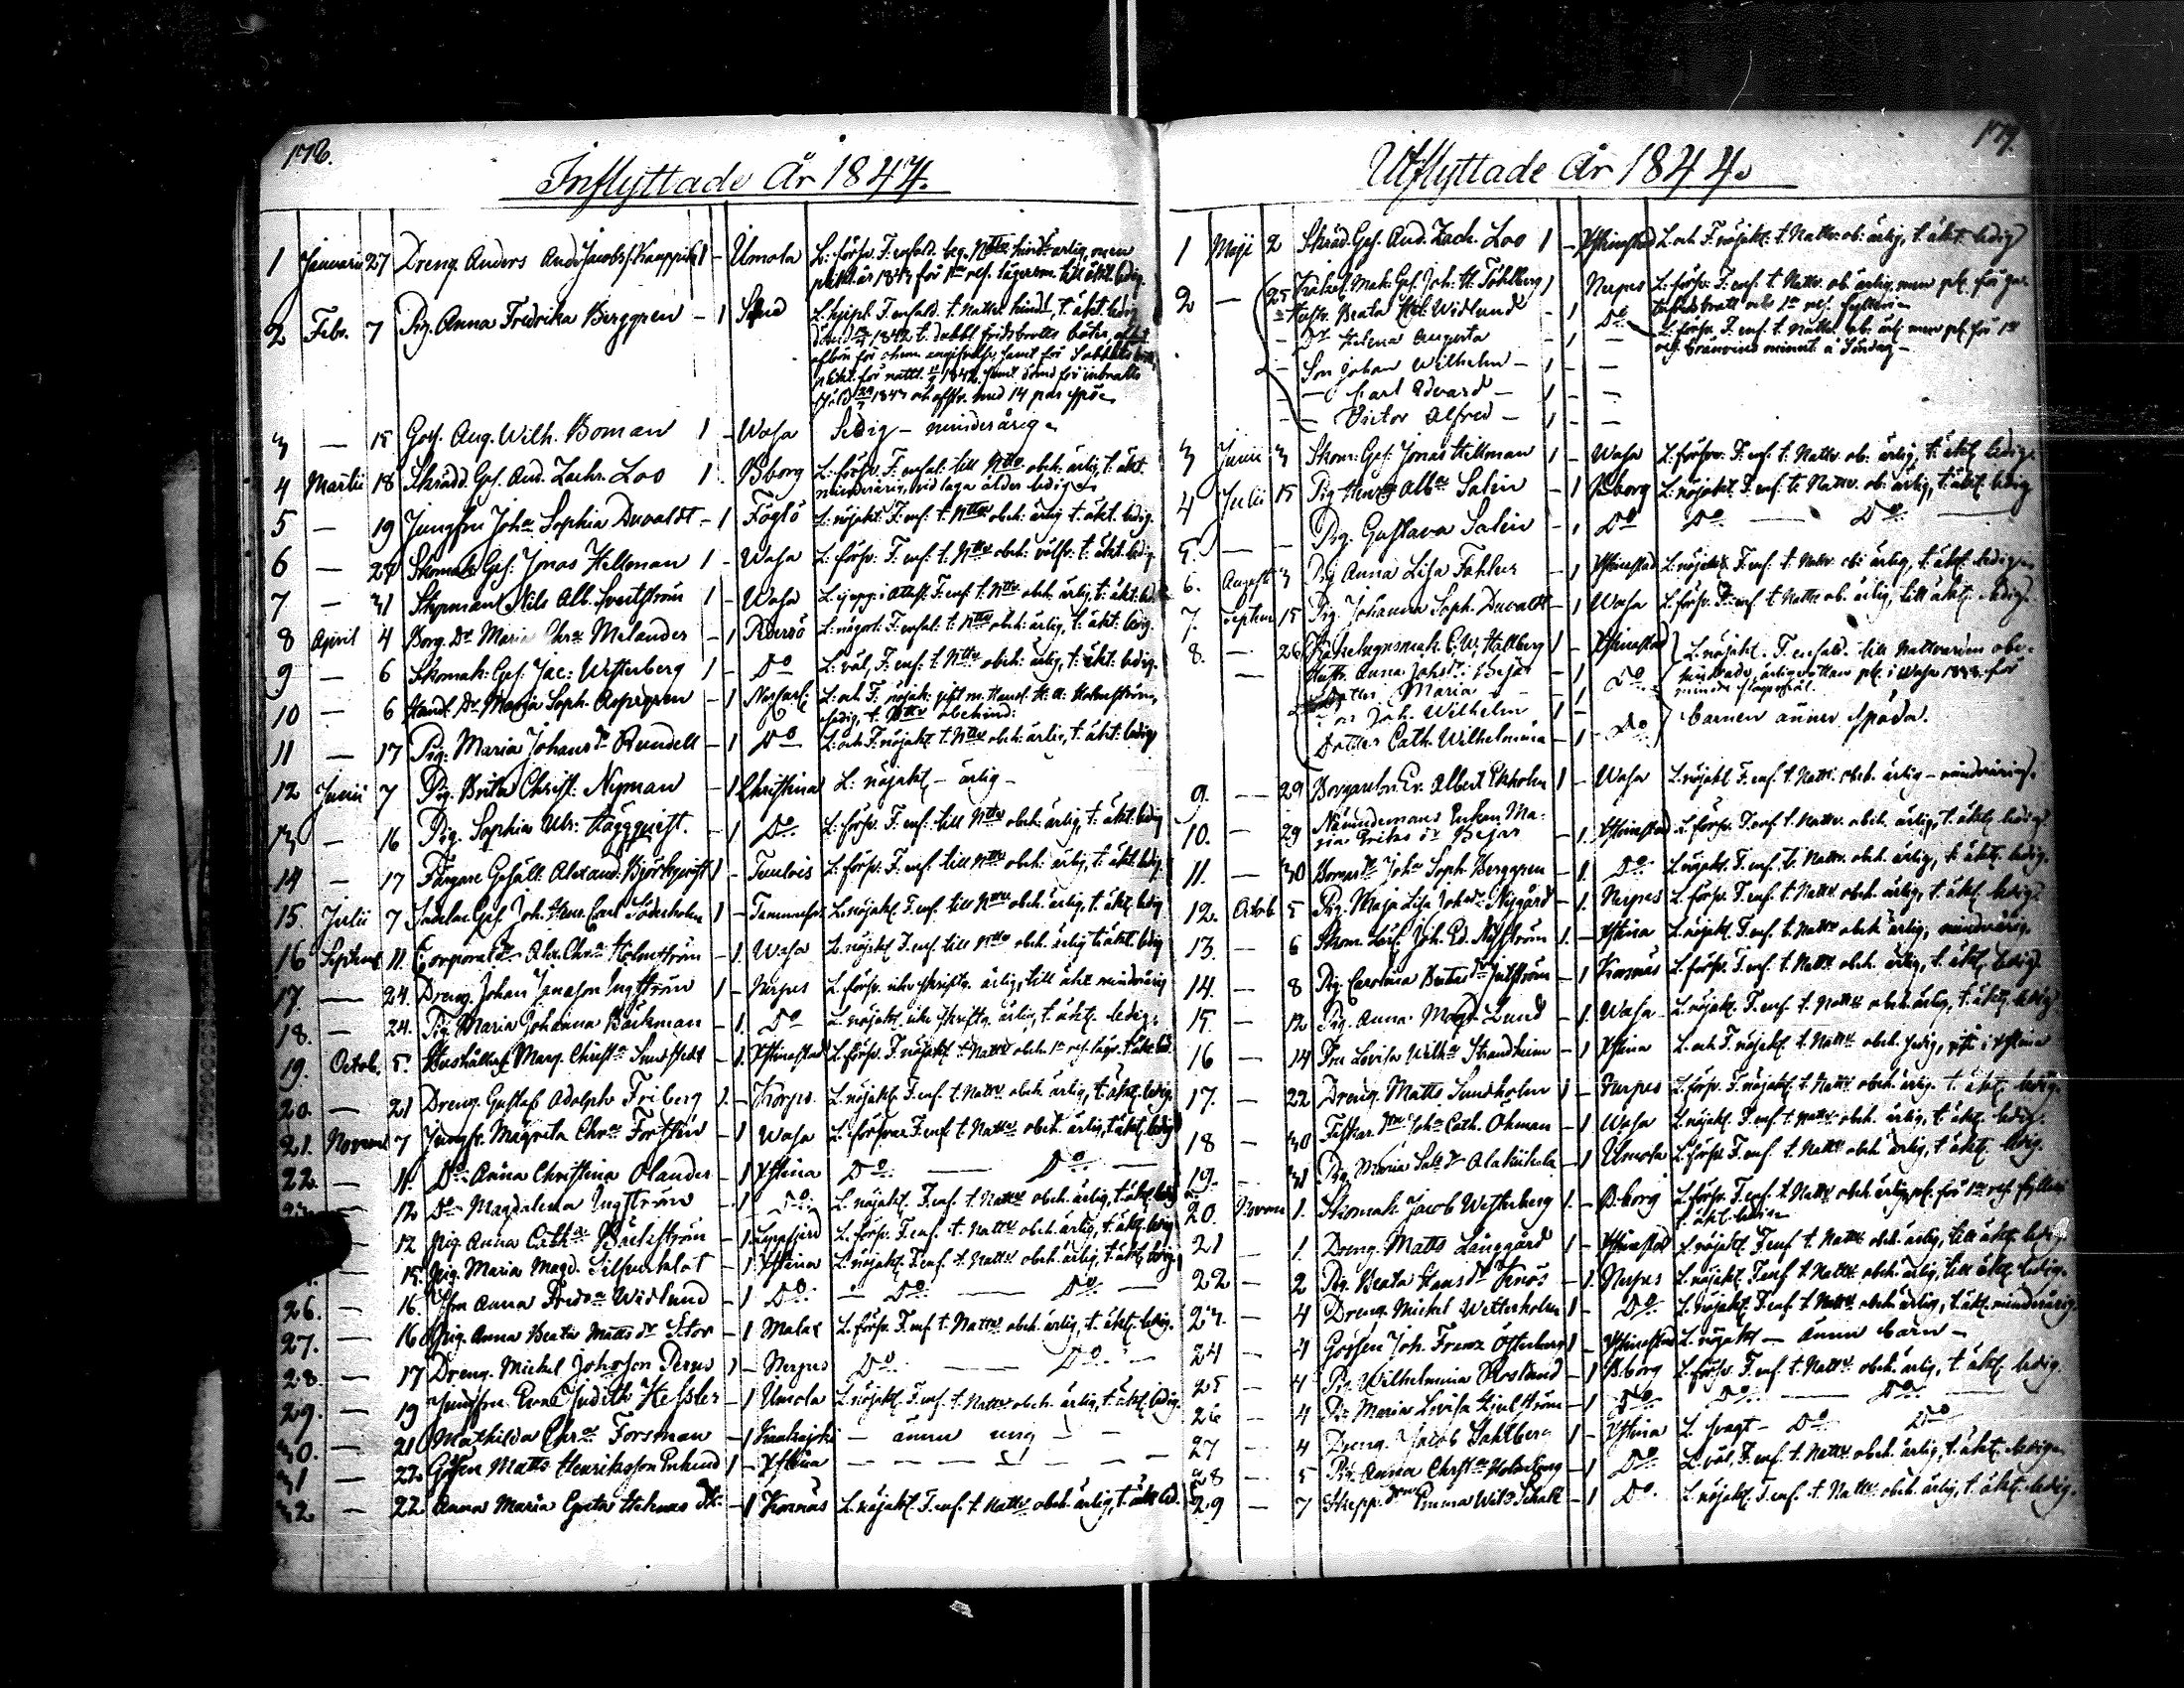 176.
Inflyttade År 1844.
1 Januarii 27 Dreng. Anders And: Jacobs: 1 - Umola L: försv. F. enfald. beg. Nttv hindr. ärlig, men
pliktat år 1843 för 1sta res. lägersm. till äkt. ledig.
2 Febr. 7 Pig. Anna Fredrika Berggren - 1 L. hjelpl. F. enfald. t. Nattv. hind., t. äkt. ledig
1842 t. dubbl. fridsbrotts böter
samt för Sabbats
1843 och afstr. med 14 par spö.
3 - 15 Goss. Aug. Wilh. Boman 1 - Wasa Ledig - minderårig
4 Martii 18 Skrädd. Ges. And. Zachr. Loo 1 Bborg L: försv. F. enfal: till Nttv obeh: ärlig, t. äkt.
minderårig, vid laga ålder ledig
5 - 19 Jungfru Joha Sophia Duvaldt - 1 Föglö L: nöjakt: F: enf: t. Nttv obeh: ärlig t. äkt. ledig.
6 - 27 Skomak. Ges: Jonas Hellman 1 - Wasa L: försv. F. enf. t. Nttv obeh: välfr. t. äkt. ledig
7 - 31 Styrman Nils Alb. 1 - Wasa F. enf t. Nttv obeh. ärlig, t. äkt. led.
8 April 4 Borg. Dr Maria Chra Melander - 1 Pedersö L: någorl: F: enfal: t: Nttv obeh: ärlig, t: äkt: ledig.
9 - 6 Skomak: Ges. Jac: Westerberg 1 - Do L: väl, F: enf: t. Nttv obeh: ärlig, t: äkt: ledig.
10 - 6 Handl. Dr Maria Soph. Aspegren - 1 L: och F: nöjak: gift m. Handl. H. A. Holmström,
ärlig, t. Nttv obehind:
11 - 17 Pig: Maria Johans Dr Rundell - 1 Do L: och F: nöjakt t. Nttv obeh: ärlig, t: äkt: ledig
12 Junii 7 Pig. Brita Christ: Nyman - 1 Christina L: nöjakt - ärlig -
13 - 16 Pig. Sophia Ulr: Häggqvist. - 1 Do L: försv. F. enf: till Nttv obeh: ärlig, t: äkt. ledig
14 - 17 Färgare Gesäll: Alexand: Björkqvist 1 - L: försv. F. enf. till Nttv obeh: ärlig, t: äkt. ledig.
15. Julii 7 Ges. Joh. Henr. Carl Söderholm 1 - Tammerfors L. nöjakt F. enf. till Nttv obeh. ärlig, t. äkt. ledig
16 Septemb 11. Corporals Dr Alex. Chra Holmström - 1. Wasa L. nöjakt F. enf. till Nttv obeh. ärlig t. äkt. ledig
17. - 24. Dreng. Johan Jonasson Ingström 1 - Nerpes L. försv. icke skriftg. ärlig, till äkt minderårig
18. - 24. Pig Maria Johanna Bäckman - 1. Do L. nöjakt. icke skriftg. ärlig, t. äkt. ledig.
19. Octob. 5. Hushållsk. Marg. Christa Sundstedt - 1. Xstinestad L. försv. F. nöjakt. t. Nattv obeh. 1a res. lägr. t. äkt. led.
20. - 21 Dreng. Gustaf Adolph Friberg 1 - Korpo L. nöjakt F. enf. t. Nattv obeh. ärlig, t. äkt. ledig.
21. Novemb 7 Jungfr. Magreta Chra Forssén - 1 Wasa L. försvar F. enf. t. Nattv. obeh. ärlig, t. äkt. ledig
22. - 11. Do Anna Christina Olander - 1 Xstina Do Do -
12 Do Magdalena Ingström - 1 Do L. nöjakt. F. enf. t. Nattv obeh. ärlig, t. äkt. ledig
12 Pig. Anna Catha Bäckström - 1 Lappfjerd L. försv. F. enf. t. Nattv. obeh. ärlig, t. äkt. ledig
- 15. Pig. Maria Magd. - 1 Xstina L. nöjakt. F. enf. t. Nattv. obeh. ärlig, t. äkt. ledig
26. - 16. Fru Anna Fredra Widlund - 1 Do - Do Do -
27. - 16 Pig. Anna Beata Matts Dr Stor - 1 Malax L. försv. F. enf. t. Nattv. obeh. ärlig, t. äkt. ledig.
28. - 17 Dreng. Mickel Johansson Perus 1 - Nerpes Do Do -
29. - 19 Jungfru Judith Hessler - 1 Umola L. nöjakt. F. enf. t. Nattv. obeh. ärlig, t. äkt. ledig.
30. - 21 Mathilda Chra Forsman - 1 - ännu ung -
31 - 22. Gossen Matts Henriksson 1 - Xstina -
32 - 22. Anna Maria Greta - 1 Korsnäs L. nöjakt. F. enf. t. Nattv. obeh. ärlig, t. äkt. led.
177.
Utflyttade År 1844.
1 Maji 2 Skräd. Ges. And. Zach. Loo 1 - Xstinestad L. och F. nöjakt: t. Nattv. ob: ärlig, t. äkt. ledig
2 - 25 Mak. Ges. Joh. H. Fahlberg 1 Nerpes L. försv. F. enf. t. Nattv. ob. ärlig, men
1a res. fylleri
Hustr. Beata Widlund - 1 Do L. försv. F. enf. t. Nattv. ob. ärl. men för 1sta
res. bränvins minut. å Söndag -
- Dr Helena Augusta - 1 -
- Son Johan Wilhelm - 1 - -
- Carl Edvard - 1 - -
- Victor Alfred - 1 - -
3 Junii 3 Skom: Ges: Jonas Hellman 1 - Wasa L. försv. F. enf. t. Nattv. ob: ärlig, t: äkt. ledig.
4 Julii 15 Pig Salin - 1 Bborg L: nöjakt. F. enf. t: Nattv. ob. ärlig, t. äkt. ledig
5. - - Pig. Gustava Salin - 1 Do Do - Do -
6. August 3 Pig Anna Lisa Fahler - 1 Xstinestad L. nöjakt. F. enf. t. Nattv. ob: ärlig, t. äkt. ledig.
7. Septemb 15 Pig. Johanna Soph. Duvaldt - 1 Wasa L. försv. F. enf. t. Nattv. ob. ärlig, till äkt. ledig.
8. - 26 C. W. Hallberg 1 - Xstinestad L. nöjakt. F. enfald. till Nattvarden obe-
Hustr. Anna Johs Dr Bejar - 1 Do hindrade, ärlige i Wasa 1833 för
Dotter Maria - 1
Son Joh. Wilhelm 1 - barnen ännu späda.
Dotter Cath. Wilhelmina - 1 Do
9. - 29 Borgareson Er. Albert Ekholm 1 - Wasa L. nöjakt F. enf. t. Nattv. obeh. ärlig - minderårig.
10. - 29 Nämndemans Enkan Ma-
ria Eriks Dr Bejar - 1. Xstinestad L. försv. F. enf. t. Nattv. obeh. ärlig, t. äkt. ledig.
11. - 30 Borgars Dr Joha Soph. Berggren - 1. Do L. nöjakt. F. enf. t. Nattv. obeh. ärlig, t. äkt. ledig.
12. Octob 5 Pig. Maja Lisa Johs Dr Nygård - 1. Nerpes L. försv. F. enf. t. Nattv. obeh. ärlig, t. äkt. ledig.
13. - 6 Skom. Lärl. Joh. Ed. 1. - Xstina L. nöjakt. F. enf. t. Nattv. obeh. ärlig, minderårig.
14. - 8 Pig. Carolina - 1 Korsnäs L. försv. F. enf. t. Nattv. obeh. ärlig, t. äkt. ledig.
15 - 12 Pig. Anna Lund - 1. Wasa L. nöjakt. F. enf. t. Nattv. obeh. ärlig, t. äkt. ledig
16 - 14 Fru Lovisa Wilha Strandheim - 1 Xstina L. och F. nöjakt. t. Nattv. obeh. ärlig, gift i Xstina
17. - 22 Dreng. Matts Sundholm 1 - Nerpes L. försv. F. nöjakt. t. Nattv. obeh. ärlig. t. äkt. ledig.
18 - 30 Fiskar. Dr Joha Cath. Öhman - 1 Wasa L. nöjakt. F. enf. t. Nattv. obeh. ärlig, t. äkt. ledig.
19. - 31 Pig. Maria - 1 Umola L. försv. F. enf. t. Nattv. obeh. ärlig, t. äkt. ledig.
20. Novem 1. Skomak. Jacob Westerberg 1. - B.borg L. försv. F. enf. t. Nattv. obeh. ärlig, för 1sta res. fylleri
t. äkt. ledig
21 - 1. Dreng. Matts Långgård 1 - Xstinestad L. nöjakt. F. enf. t. Nattv. obeh. ärlig, till äkt. ledig
22 - 2 Pig. Beata Hans Dr Knös - 1. Nerpes L. nöjakt. F. enf. t. Nattv. obeh. ärlig, till äkt. ledig.
23. - 4 Dreng. Mickel Wetterholm 1 - Do L. nöjakt. F. enf. t. Nattv. obeh. ärlig, t. äkt. minderårig
24 - 4 Gossen Joh. Franz Österberg 1 - Xstinestad L. nöjakt - ännu barn -
25 - 4 Pig. Wilhelmina Roslund - 1 Bborg L. försv. F. enf. t. Nattv. obeh. ärlig, t. äkt. ledig.
26 - 4 Pig. Maria Lovisa - 1 Do Do - Do -
27 - 4 Dreng. Jacob Dahlberg 1 - Xstina L. svagt - Do Do
28 - 5 Pig. Anna Christa - 1 Do L. väl, F. enf. t. Nattv. obeh. ärlig, t. äkt. ledig.
29 - 7 Skepp. Dr Emma Wilh. Schalt - 1 Do. L. nöjakt. F. enf. t. Nattv. obeh. ärlig, t. äkt. ledig.